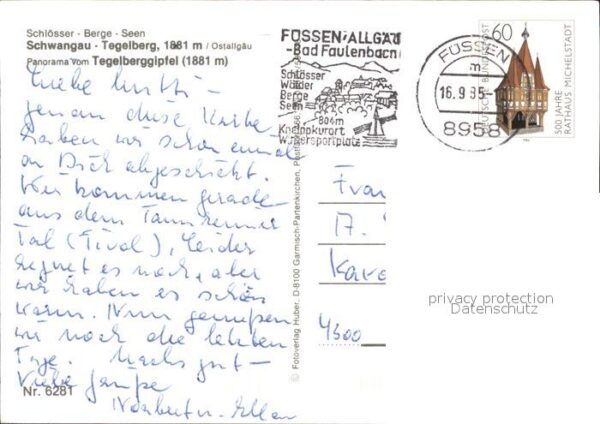 Schlösser · Berge · Seen
Schwangau · Tegelberg, 1881 m / Ostallgäu
Panorama vom Tegelberggipfel (1881 m)
Liebe Mutti –
genau diese Karte
haben wir schon einmal
an Dich abgeschickt.
Wir kommen gerade
aus dem Tannheimer
Tal (Tirol), leider
regnet es noch, aber
wir haben es schön
warm. Nun genießen
wir noch die letzten
Tage. Machs gut –
Liebe
Norbert u. Ellen
Nr. 6281
© Fotoverlag Huber, D-8100 Garmisch-Partenkirchen,
FÜSSEN-ALLGÄU
-Bad Faulenbach
Schlösser
Wälder
Berge
Seen
804m
Kneippkurort
Wintersportplatz
FÜSSEN
m
16.9.85-
8958
60
DEUTSCHE BUNDESPOST
500 JAHRE
RATHAUS MICHELSTADT
Frau
17.
4300
privacy protection
Datenschutz